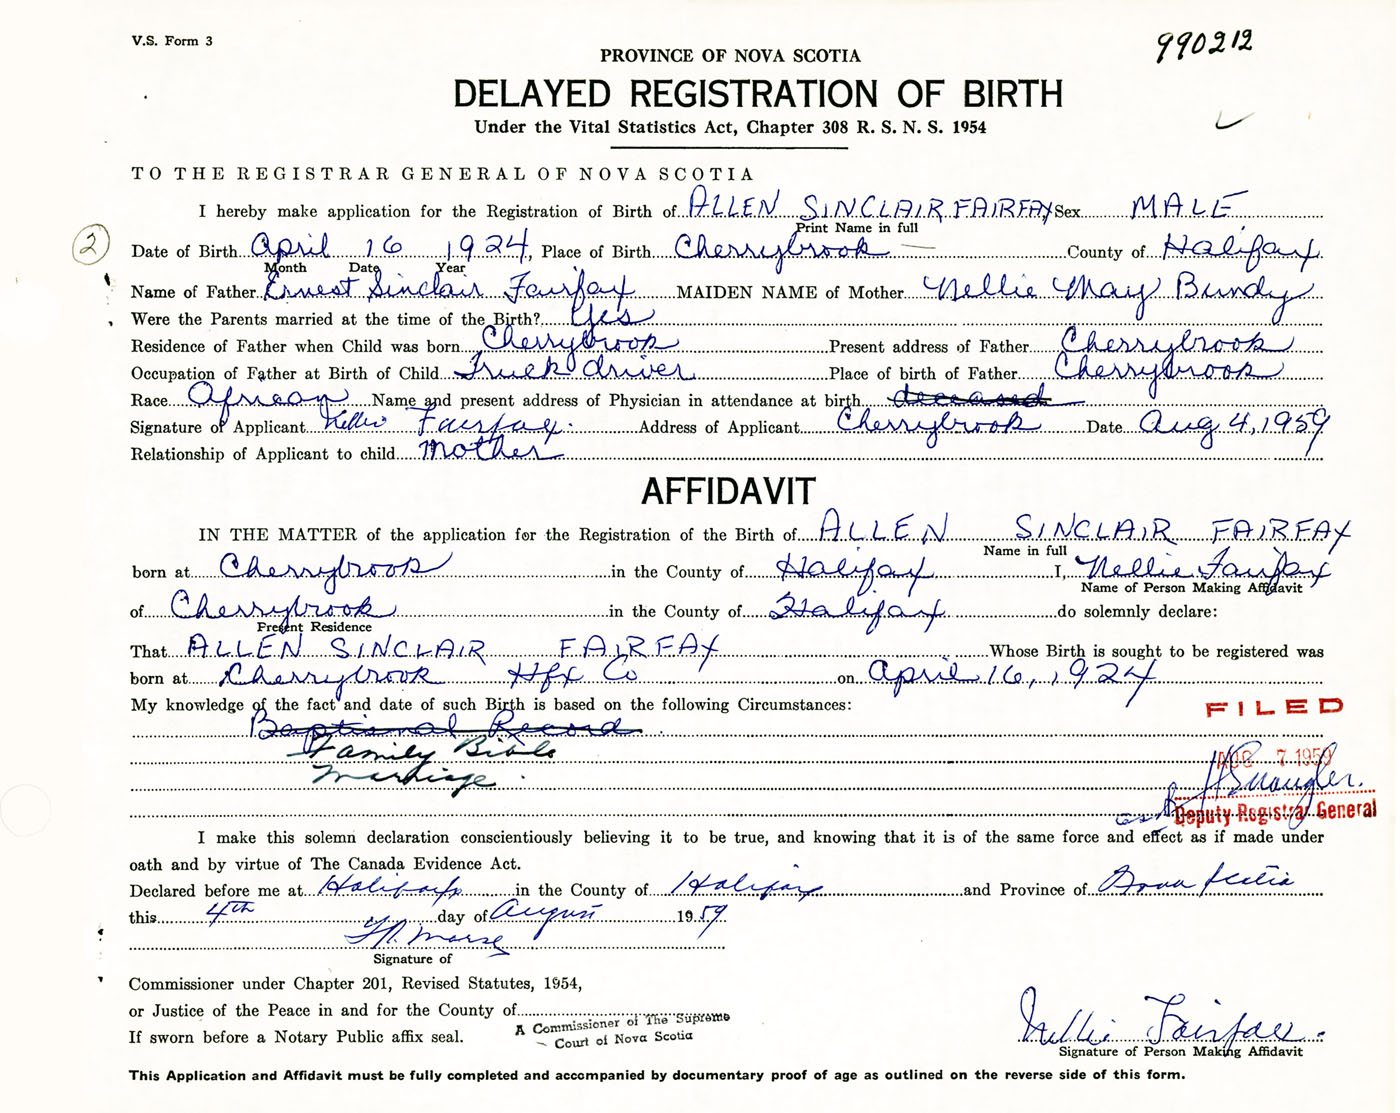 V.S. Form 3
990212
PROVINCE OF NOVA SCOTIA
DELAYED REGISTRATION OF BIRTH
Under the Vital Statistics Act, Chapter 308 R. S. N. S. 1954
TO THE REGISTRAR GENERAL OF NOVA SCOTIA
I hereby make application for the Registration of Birth of ALLEN SINCLAIR FAIRFAX Sex MALE
Print Name in full
2 Date of Birth April 16 1924, Place of Birth Cherrybrook County of Halifax
Month Date Year
Name of Father Ernest Sinclair Fairfax MAIDEN NAME of Mother Nellie May Bundy
Were the Parents married at the time of the Birth? Yes
Residence of Father when Child was born Cherrybrook Present address of Father Cherrybrook
Occupation of Father at Birth of Child Truck driver Place of birth of Father Cherrybrook
Race African Name and present address of Physician in attendance at birth deceased
Signature of Applicant Nellie Fairfax. Address of Applicant Cherrybrook Date Aug 4, 1959
Relationship of Applicant to child Mother
AFFIDAVIT
IN THE MATTER of the application for the Registration of the Birth of ALLEN SINCLAIR FAIRFAX
Name in full
born at Cherrybrook in the County of Halifax I, Nellie Fairfax
Name of Person Making Affidavit
of Cherrybrook in the County of Halifax do solemnly declare:
Present Residence
That ALLEN SINCLAIR FAIRFAX Whose Birth is sought to be registered was
born at Cherrybrook Hfx Co on April 16, 1924
My knowledge of the fact and date of such Birth is based on the following Circumstances:
FILED
Baptismal Record
Family Bible
AUG 7 1959
Marriage.
Deputy Registrar General
I make this solemn declaration conscientiously believing it to be true, and knowing that it is of the same force and effect as if made under
oath and by virtue of The Canada Evidence Act.
Declared before me at Halifax in the County of Halifax and Province of Nova Scotia
this 4th day of August 1959
Signature of
Commissioner under Chapter 201, Revised Statutes, 1954,
or Justice of the Peace in and for the County of
A Commissioner of The Supreme
Court of Nova Scotia
If sworn before a Notary Public affix seal.
Nellie Fairfax.
Signature of Person Making Affidavit
This Application and Affidavit must be fully completed and accompanied by documentary proof of age as outlined on the reverse side of this form.